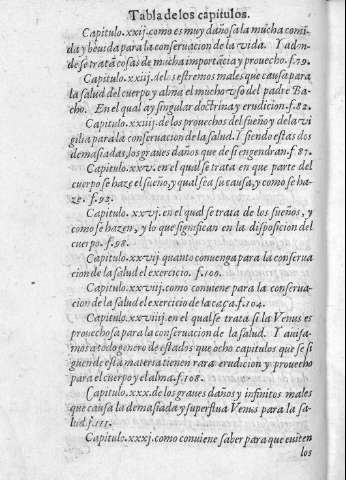 Tabla de los capitulos.
Capitulo.xxij.como es muy dañosa la mucha comi-
da y beuida para la conseruacion de la vida. Y adon-
de se tratã cosas de mucha importãcia y prouecho.f.79.
Capitulo.xxiij.de los estremos males que causa para
la salud del cuerpo y alma el mucho vso del padre Ba-
cho. En el qual ay singular doctrina y erudicion.f.82.
Capitulo.xxiiij.de los prouechos del sueño y de la vi
gilia para la conseruacion de la salud. Y siendo estas dos
demasiadas, los graues daños que de si engendran.f.87.
Capitulo.xxv.en el qual se trata en que parte del
cuerpo se haze el sueño, y qual sea su causa, y como se ha-
ze. f.93.
Capitulo.xxvj.en el qual se trata de los sueños, y
como se hazen, y lo que significan en la disposicion del
cuerpo. f.98.
Capitulo.xxvij.quanto conuenga para la conserua
cion de la salud el exercicio. f.100.
Capitulo.xxviij.como conuiene para la conserua-
cion de la salud el exercicio de la caça.f.104.
Capitulo.xxviiij.en el qual se trata si la Venus es
prouechosa para la conseruacion de la salud. Y auisa-
mos a todo genero de estados que ocho capitulos que se si
guen de esta materia tienen rara erudicion y prouecho
para el cuerpo y el alma.f.108.
Capitulo.xxx.de los graues daños y infinitos males
que causa la demasiada y superflua Venus para la sa-
lud.f.111.
Capitulo.xxxj.como conuiene saber para que euiten
los